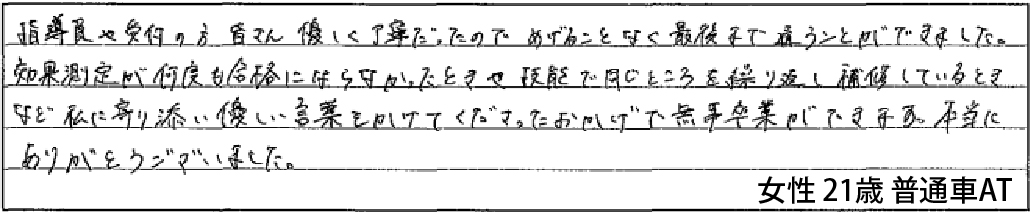 指導員や受付の方 皆さん 優しく丁寧だったので あげることなく最後まで通うことができました。
効果測定が何度も合格にならなかったときや 技能で同じところを繰り返し 補修しているとき
など 私に寄り添い優しい言葉をかけてくださったおかげで無事卒業ができます。本当に
ありがとうございました。
女性 21歳 普通車AT